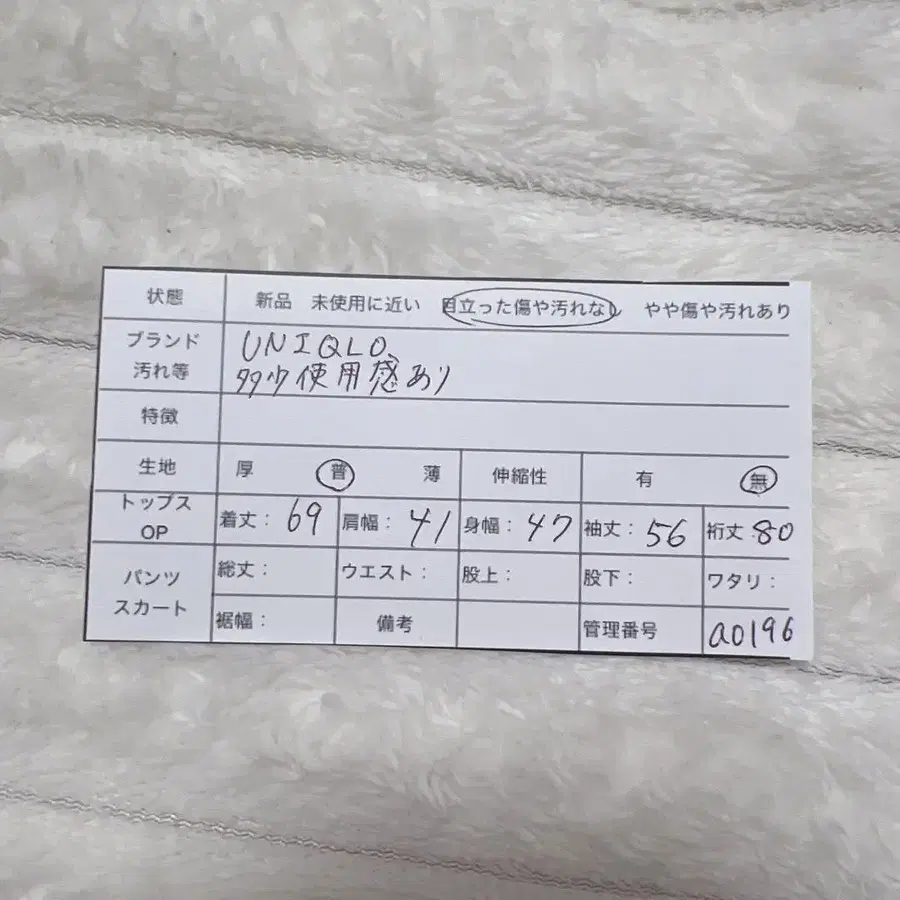 状態 新品 未使用に近い 目立った傷や汚れなし やや傷や汚れあり
ブランド UNIQLO、
汚れ等 多少使用感あり
特徴
生地 厚 普 薄 伸縮性 有 無
トップス
OP 着丈：69 肩幅：41 身幅：47 袖丈：56 裄丈：80
パンツ 総丈： ウエスト： 股上： 股下： ワタリ：
スカート 裾幅： 備考 管理番号 a0196